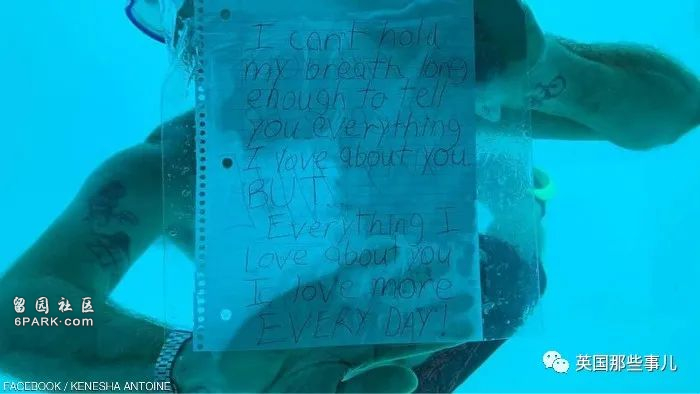 I can't hold
my breath long
enough to tell
you everything
I love about you
BUT.
Everything I
Love about you
I love more
EVERY DAY!
留园社区
6PARK.com
英国那些事儿
FACEBOOK / KENESHA ANTOINE